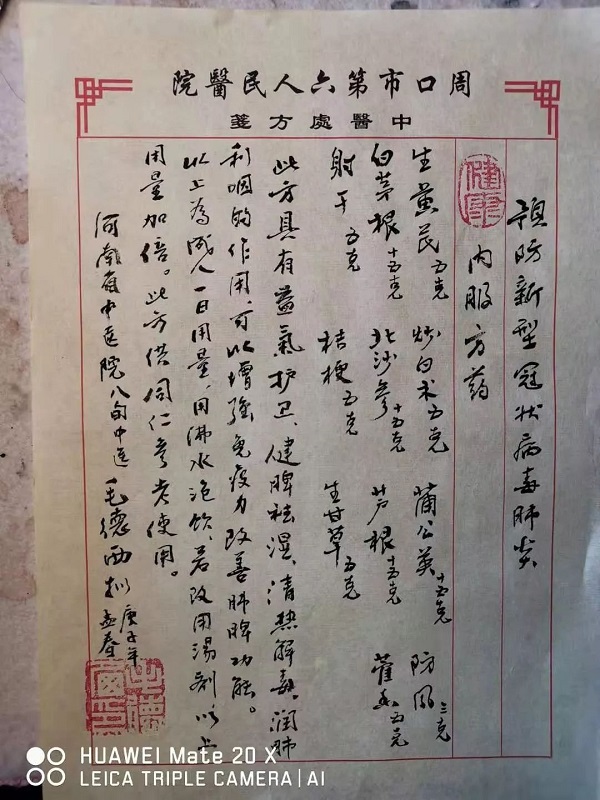 周口市第六人民醫院
中醫處方箋
預防新型冠状病毒肺炎
内服方药
生黄芪五克 炒白术五克 蒲公英十五克 防风三克
白茅根十五克 北沙参十五克 芦根十五克 藿香五克
射干五克 桔梗五克 生甘草五克
此方具有益氣护卫、健脾祛湿、清热解毒、润肺
利咽的作用,可以增强免疫力改善肺脾功能。
以上為成人一日用量,用沸水泡饮,若改用湯剂以上
用量加倍。此方供同仁參考使用。
河南省中医院八旬中医 毛德西拟 庚子年
孟春
HUAWEI Mate 20 X
LEICA TRIPLE CAMERA | AI